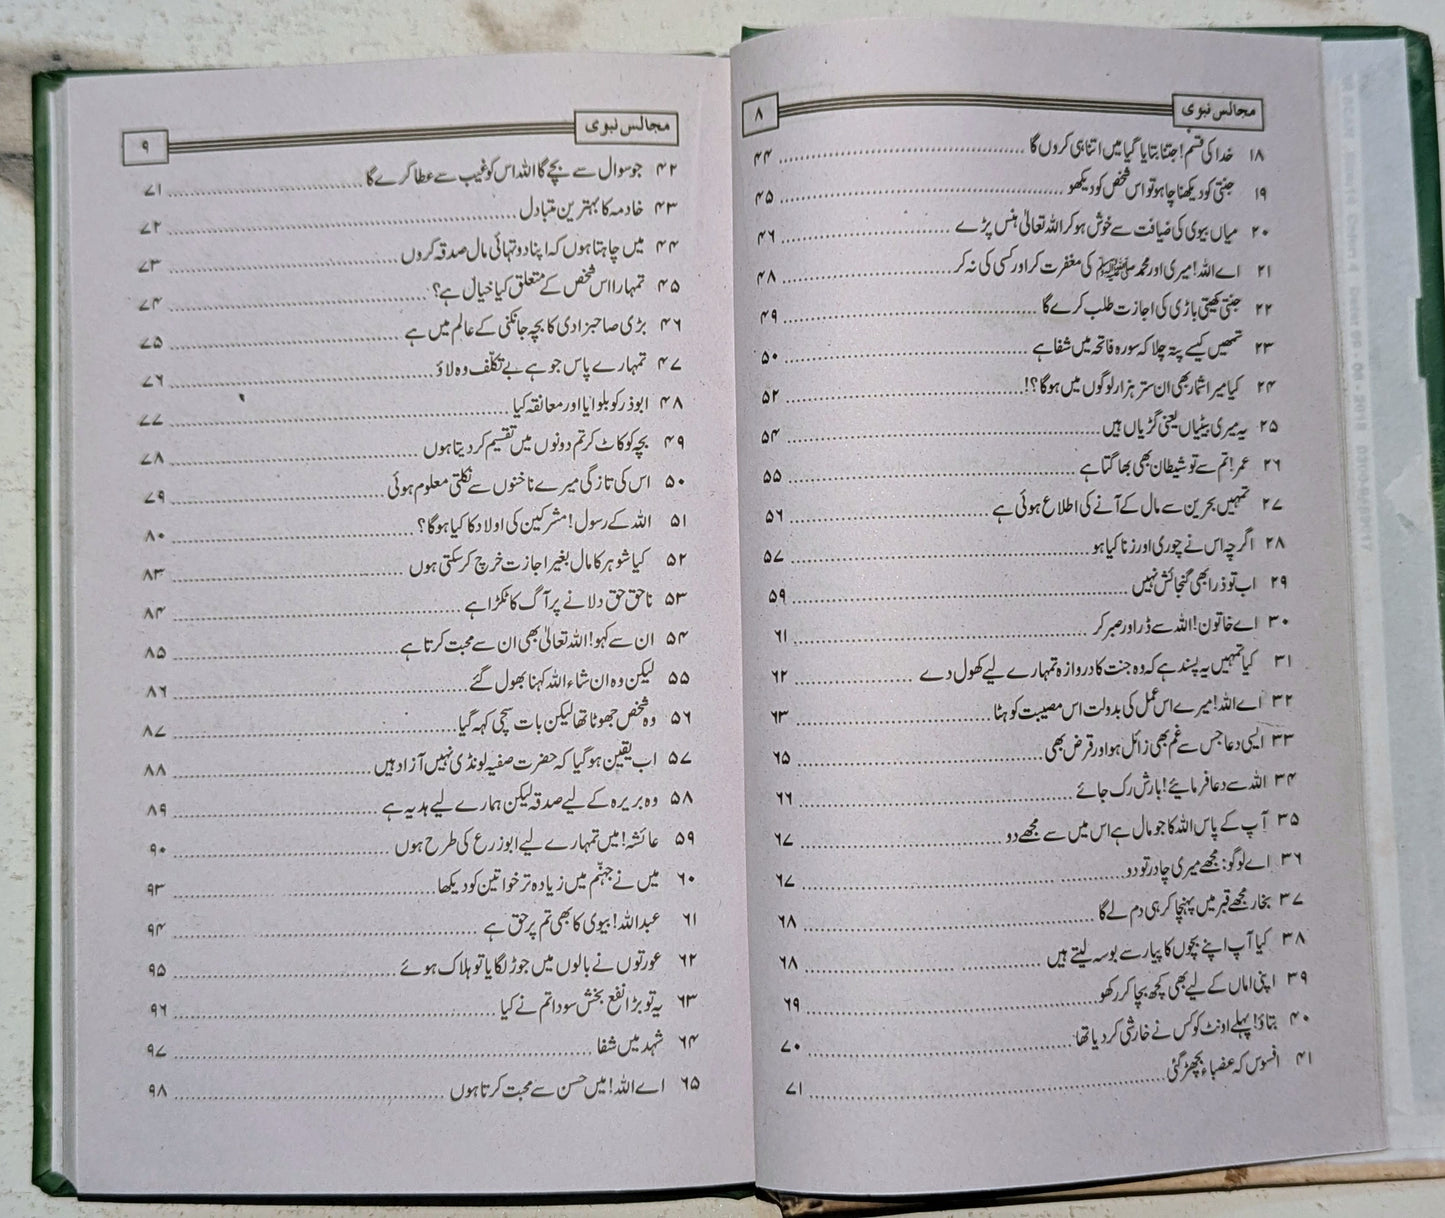 مجالس نبوی ۸
۱۸ خدا کی قسم! جتنا بتایا گیا میں اتنا ہی کروں گا ۴۴
۱۹ جنتی کو دیکھنا چاہو تو اس شخص کو دیکھو ۴۵
۲۰ میاں بیوی کی ضیافت سے خوش ہو کر اللہ تعالیٰ ہنس پڑے ۴۶
۲۱ اے اللہ! میری اور محمد ﷺ کی مغفرت کر اور کسی کی نہ کر ۴۸
۲۲ جنتی کھیتی باڑی کی اجازت طلب کرے گا ۴۹
۲۳ تمھیں کیسے پتہ چلا کہ سورہ فاتحہ میں شفا ہے ۵۰
۲۴ کیا میرا شمار بھی ان ستر ہزار لوگوں میں ہوگا؟! ۵۲
۲۵ یہ میری بیٹیاں یعنی گڑیاں ہیں ۵۴
۲۶ عمر! تم سے تو شیطان بھی بھاگتا ہے ۵۵
۲۷ تمہیں بحرین سے مال کے آنے کی اطلاع ہوئی ہے ۵۶
۲۸ اگرچہ اس نے چوری اور زنا کیا ہو ۵۷
۲۹ اب تو ذرا بھی گنجائش نہیں ۵۹
۳۰ اے خاتون! اللہ سے ڈر اور صبر کر ۶۱
۳۱ کیا تمہیں یہ پسند ہے کہ وہ جنت کا دروازہ تمہارے لیے کھول دے ۶۲
۳۲ اے اللہ! میرے اس عمل کی بدولت اس مصیبت کو ہٹا ۶۳
۳۳ ایسی دعا جس سے غم بھی زائل ہو اور قرض بھی ۶۵
۳۴ اللہ سے دعا فرمائیے! بارش رک جائے ۶۶
۳۵ آپ کے پاس اللہ کا جو مال ہے اس میں سے مجھے دو ۶۷
۳۶ اے لوگو: مجھے میری چادر تو دو ۶۷
۳۷ بخار مجھے قبر میں پہنچا کر ہی دم لے گا ۶۸
۳۸ کیا آپ اپنے بچوں کا پیار سے بوسہ لیتے ہیں ۶۸
۳۹ اپنی اماں کے لیے بھی کچھ بچا کر رکھو ۶۹
۴۰ بتاؤ! پہلے اونٹ کو کس نے خارشی کر دیا تھا ۷۰
۴۱ افسوس کہ عضباء بچھڑ گئی ۷۱
مجالس نبوی ۹
۴۲ جو سوال سے بچے گا اللہ اس کو غیب سے عطا کرے گا ۷۱
۴۳ خادمہ کا بہترین متبادل ۷۲
۴۴ میں چاہتا ہوں کہ اپنا دو تہائی مال صدقہ کروں ۷۳
۴۵ تمہارا اس شخص کے متعلق کیا خیال ہے؟ ۷۴
۴۶ بڑی صاحبزادی کا بچہ جانکنی کے عالم میں ہے ۷۵
۴۷ تمہارے پاس جو ہے بے تکلّف وہ لاؤ ۷۶
۴۸ ابوذر کو بلوایا اور معانقہ کیا ۷۷
۴۹ بچہ کو کاٹ کر تم دونوں میں تقسیم کر دیتا ہوں ۷۸
۵۰ اس کی تازگی میرے ناخنوں سے نکلتی معلوم ہوئی ۷۹
۵۱ اللہ کے رسول! مشرکین کی اولاد کا کیا ہوگا؟ ۸۰
۵۲ کیا شوہر کا مال بغیر اجازت خرچ کر سکتی ہوں ۸۳
۵۳ ناحق حق دلانے پر آگ کا ٹکڑا ہے ۸۴
۵۴ ان سے کہو! اللہ تعالیٰ بھی ان سے محبت کرتا ہے ۸۵
۵۵ لیکن وہ ان شاء اللہ کہنا بھول گئے ۸۶
۵۶ وہ شخص جھوٹا تھا لیکن بات سچی کہہ گیا ۸۷
۵۷ اب یقین ہو گیا کہ حضرت صفیہ لونڈی نہیں آزاد ہیں ۸۸
۵۸ وہ بریرہ کے لیے صدقہ لیکن ہمارے لیے ہدیہ ہے ۸۹
۵۹ عائشہ! میں تمہارے لیے ابوزرع کی طرح ہوں ۹۰
۶۰ میں نے جہنّم میں زیادہ تر خواتین کو دیکھا ۹۳
۶۱ عبداللہ! بیوی کا بھی تم پر حق ہے ۹۴
۶۲ عورتوں نے بالوں میں جوڑ لگایا تو ہلاک ہوئے ۹۵
۶۳ یہ تو بڑا نفع بخش سودا تم نے کیا ۹۶
۶۴ شہد میں شفا ۹۷
۶۵ اے اللہ! میں حسن سے محبت کرتا ہوں ۹۸